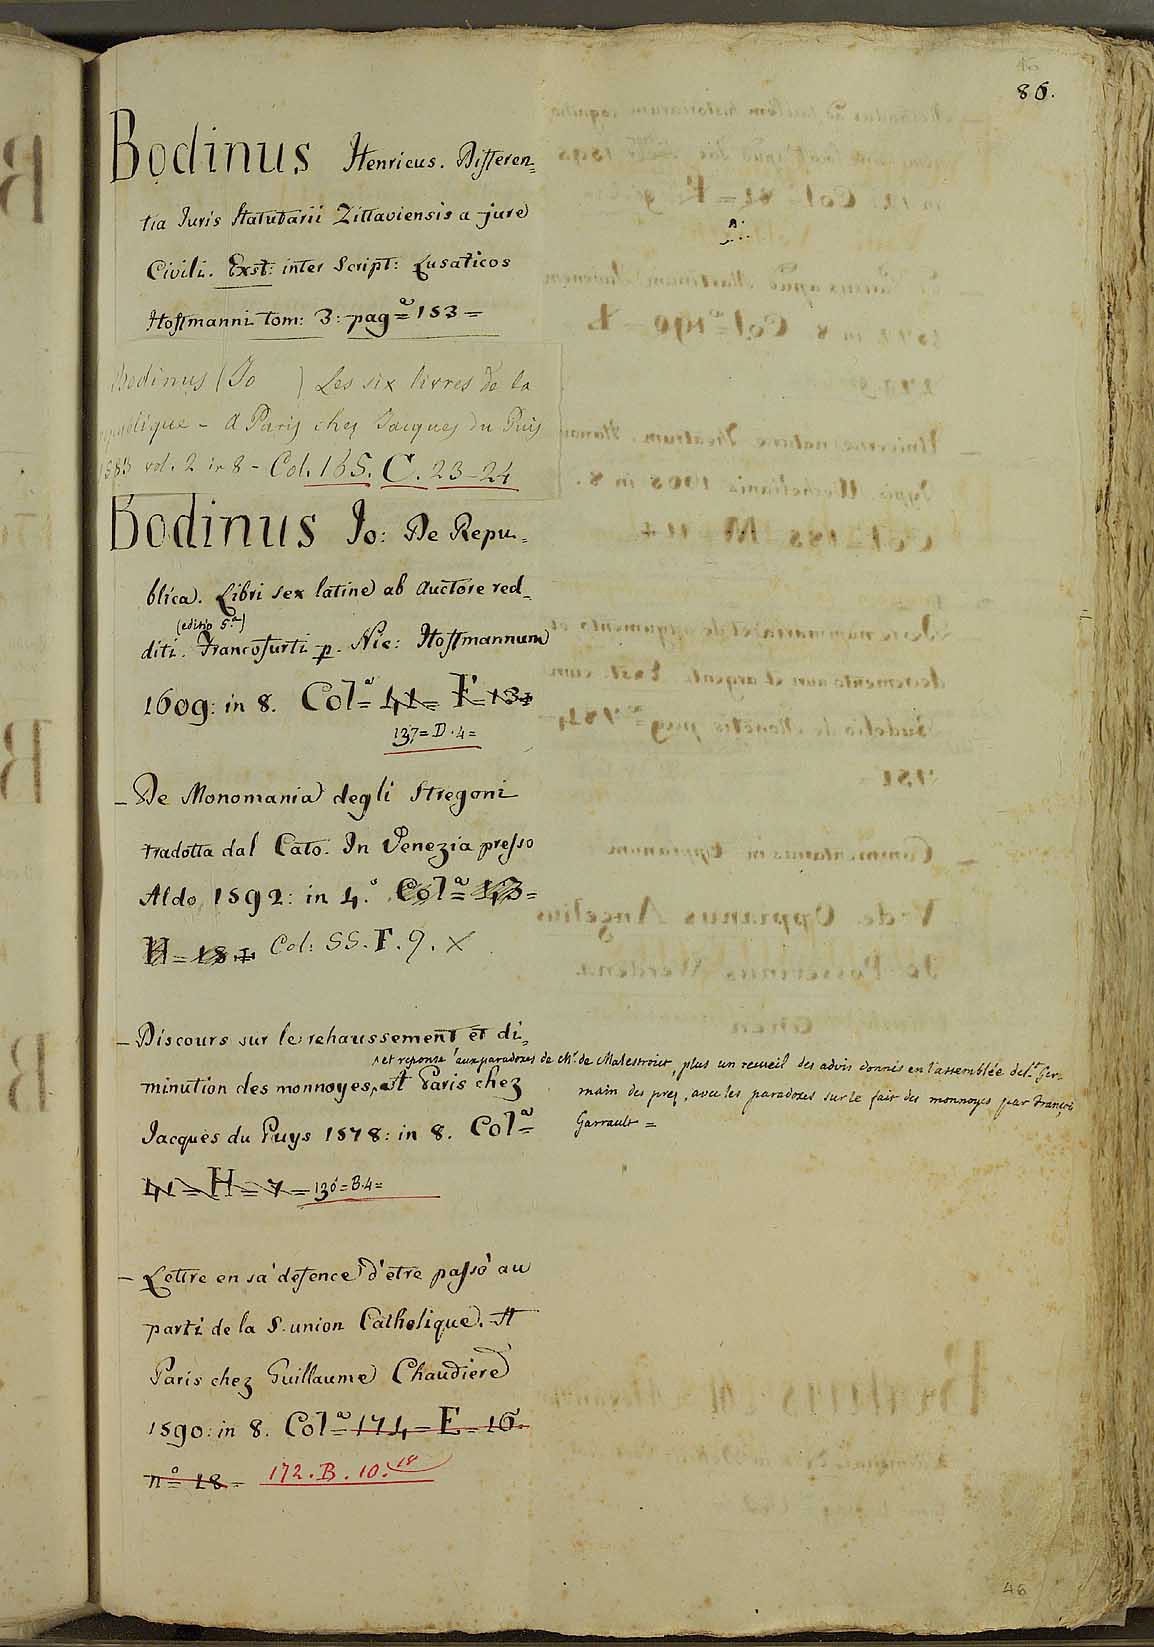 46
86.
Bodinus Henricus. Differen=
tia Juris Statutarii Zittaviensis a jure
Civili. Exst: inter Script: Lusaticos
Hoffmanni tom: 3: pag.ª 153=
Bodinus (Jo ) Les six livres de la
republique - A Paris chez Jacques du Puis
1583 vol. 2 in 8 - Col. 165. C. 23-24
Bodinus Jo: De Repu=
blica. Libri sex latine ab auctore red=
(editio 5.ª)
diti. Francofurti p. Nic: Hoffmannum
1609: in 8. Col.ª 41= E=13=
137=D.4=
_ De Monomania degli Stregoni
tradotta dal Cato. In Venezia presso
Aldo 1592: in 4.º Col.ª 43=
H=18= Col: 55. F. 9. X
_ Discours sur le rehaussement et di=
et reponse aux paradoxes de Mr. de Malestroict, plus un recueil des advis donnés en l'assemblée de St. Ger=
minution des monnoyes, A Paris chez
main des prez, avec les paradoxes sur le fait des monnoyes par François
Garrault =
Jacques du Puys 1578: in 8. Col.ª
41=H=7= 136=B.4=
_ Lettre en sa defence d'etre passé au
parti de la S. union Catholique. A
Paris chez Guillaume Chaudiere
1590: in 8. Col.ª 174=E=16.
n.º 18= 172.B.10.18
46